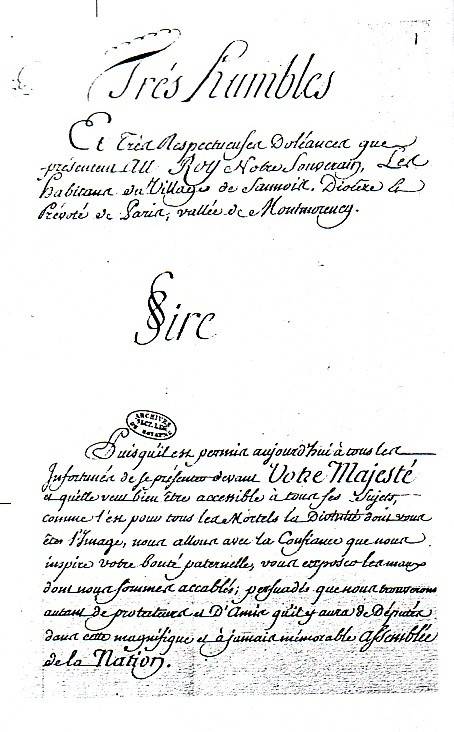 1
Trés humbles
Et Très Respectueuses Doléances que
présentent AU ROY Notre Souverain, Les
habitans du Village de Sannois. Diocèse &
Prévoté de Paris, vallée de Montmorency.
Sire
ARCHIVES
Puisqu'il est permis aujourd'hui à tous les
Infortunés de se présenter devant Votre Majesté
et qu'elle veut bien être accessible à tous ses Sujets,
comme l'est pour tous les Mortels la Divinité dont vous
êtes l'Image, nous allons avec la Confiance que nous
inspire votre bonté paternelle, vous exposer les maux
dont nous sommes accablés; persuadés que nous trouverons
autant de protecteurs et D'Amis qu'il y aura de Députés
dans cette magnifique et à jamais mémorable assemblée
de la Nation.